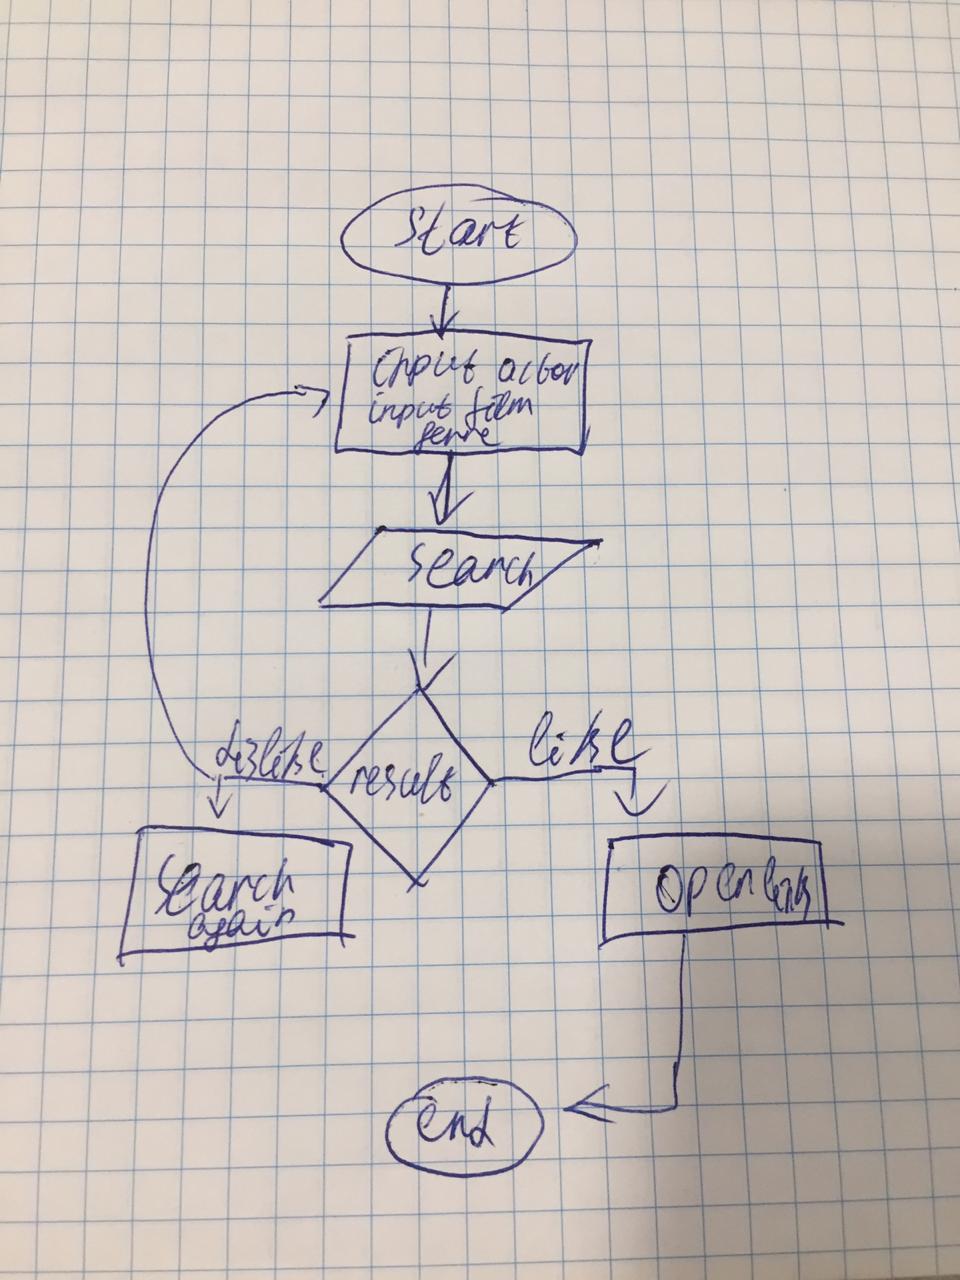 Start
input actor
input film
genre
search
dislike
result
like
Search
again
open link
end